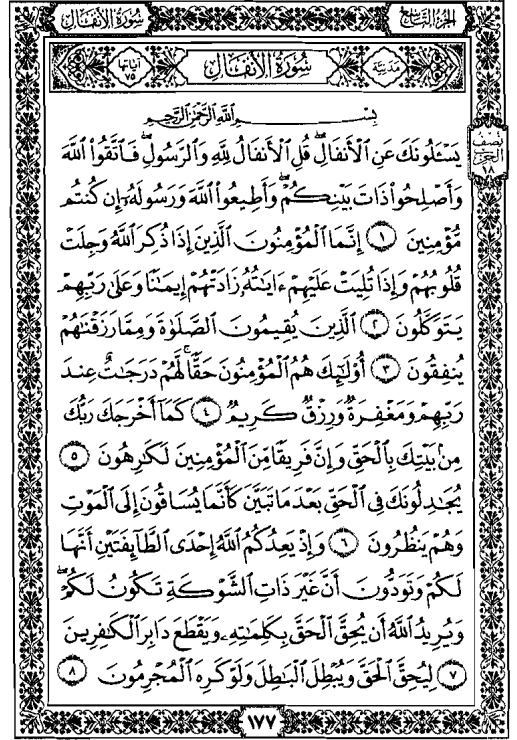 الجزء التاسع
سورة الأنفال
مدنية
سُورَةُ الأَنفَالِ
آياتها
٧٥
بِسْمِ اللَّهِ الرَّحْمَٰنِ الرَّحِيمِ
يَسْـَٔلُونَكَ عَنِ ٱلْأَنفَالِ ۖ قُلِ ٱلْأَنفَالُ لِلَّهِ وَٱلرَّسُولِ ۖ فَٱتَّقُوا۟ ٱللَّهَ
نصف
الحزب
١٨
وَأَصْلِحُوا۟ ذَاتَ بَيْنِكُمْ ۖ وَأَطِيعُوا۟ ٱللَّهَ وَرَسُولَهُۥٓ إِن كُنتُم
مُّؤْمِنِينَ ١ إِنَّمَا ٱلْمُؤْمِنُونَ ٱلَّذِينَ إِذَا ذُكِرَ ٱللَّهُ وَجِلَتْ
قُلُوبُهُمْ وَإِذَا تُلِيَتْ عَلَيْهِمْ ءَايَٰتُهُۥ زَادَتْهُمْ إِيمَٰنًا وَعَلَىٰ رَبِّهِمْ
يَتَوَكَّلُونَ ٢ ٱلَّذِينَ يُقِيمُونَ ٱلصَّلَوٰةَ وَمِمَّا رَزَقْنَٰهُمْ
يُنفِقُونَ ٣ أُو۟لَٰٓئِكَ هُمُ ٱلْمُؤْمِنُونَ حَقًّا ۚ لَّهُمْ دَرَجَٰتٌ عِندَ
رَبِّهِمْ وَمَغْفِرَةٌ وَرِزْقٌ كَرِيمٌ ٤ كَمَآ أَخْرَجَكَ رَبُّكَ
مِنۢ بَيْتِكَ بِٱلْحَقِّ وَإِنَّ فَرِيقًا مِّنَ ٱلْمُؤْمِنِينَ لَكَٰرِهُونَ ٥
يُجَٰدِلُونَكَ فِى ٱلْحَقِّ بَعْدَ مَا تَبَيَّنَ كَأَنَّمَا يُسَاقُونَ إِلَى ٱلْمَوْتِ
وَهُمْ يَنظُرُونَ ٦ وَإِذْ يَعِدُكُمُ ٱللَّهُ إِحْدَى ٱلطَّآئِفَتَيْنِ أَنَّهَا
لَكُمْ وَتَوَدُّونَ أَنَّ غَيْرَ ذَاتِ ٱلشَّوْكَةِ تَكُونُ لَكُمْ
وَيُرِيدُ ٱللَّهُ أَن يُحِقَّ ٱلْحَقَّ بِكَلِمَٰتِهِۦ وَيَقْطَعَ دَابِرَ ٱلْكَٰفِرِينَ
٧ لِيُحِقَّ ٱلْحَقَّ وَيُبْطِلَ ٱلْبَٰطِلَ وَلَوْ كَرِهَ ٱلْمُجْرِمُونَ ٨
١٧٧